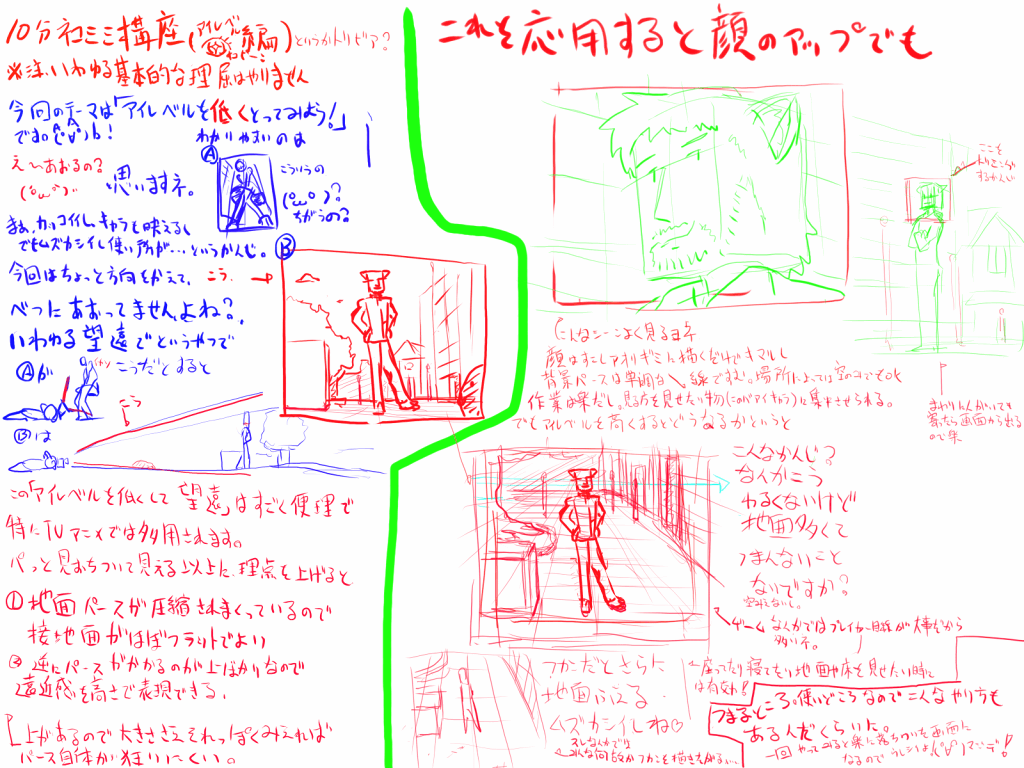 10分ネコミミ講座(アイレベル編)というかトリビア?
※注.いわゆる基本的な理屈はやりません
今回のテーマは「アイレベルを低くとってみよう!」
です。(°∀°)b!
わかりやすいのは
A
え〜あおるの?
(°ω°)
思いますネ。
こういうの
(°ω°)?
ちがうの?
まぁ、カッコイイし、キャラを映えるし
でもムズカシイし使い所が…というかんじ。
B
今回はちょっと方向をかえて、こう.→
べつにあおってませんよね?
いわゆる望遠でというやつで
Aが
こうだとすると
Bは
こう
この「アイレベルを低くして望遠」はすごく便理で
特にTVアニメでは多用されます。
パッと見おちついて見える以上に、理点を上げると
① 地面パースが圧縮されまくっているので
接地面がほぼフラットでよい
② 逆にパースがかかるのが上ばかりなので
遠近感を高さで表現できる.
上があるので大きささえそれっぽくみえれば
パース自体が狂いにくい。
これを応用すると顔のアップでも
ここを
トリミング
するかんじ
こんなシーンよく見るヨネ
顔はすこしアオリギミに描くだけでキマルし
背景パースは単調な＼線ですむ。場所によっては空のみでもOK
作業は楽だし、見る方を見せたい物(この場合キャラ)に集中させられる。
でもアイレベルを高くするとどうなるかというと
まわりにんがいても
寄ったら画面から出る
ので楽
こんなかんじ?
なんかこう
わるくないけど
地面多くて
つまんないこと
ないですか?
空みえないし。
ゲームなんかではプレイヤー目線が大事だから
多いネ。
フカンだとさらに
地面ふえる.
ムズカシイしね♡
←座ったり寝てたり地面や床を見せたい時に
は有効!
つまるところ。使いどころなのでこんなやり方も
あるんだくらいに。
一回やってみると楽に落ちついた画面に
なるのでうれしいよ(°∀°)マジデ!